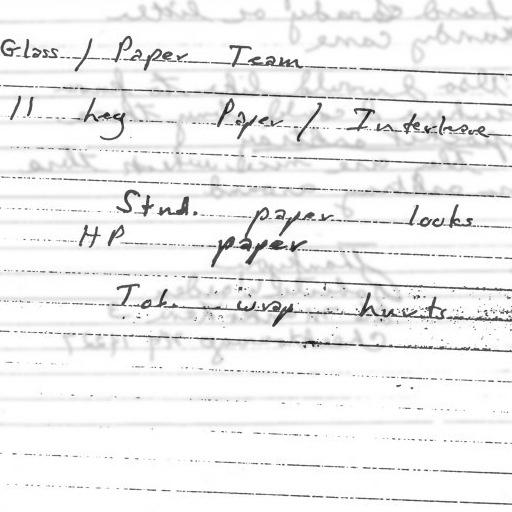 Glass / Paper Team
11 heg Paper / Interleave
Stnd. paper looks
HP paper
Tob. wrap hurts